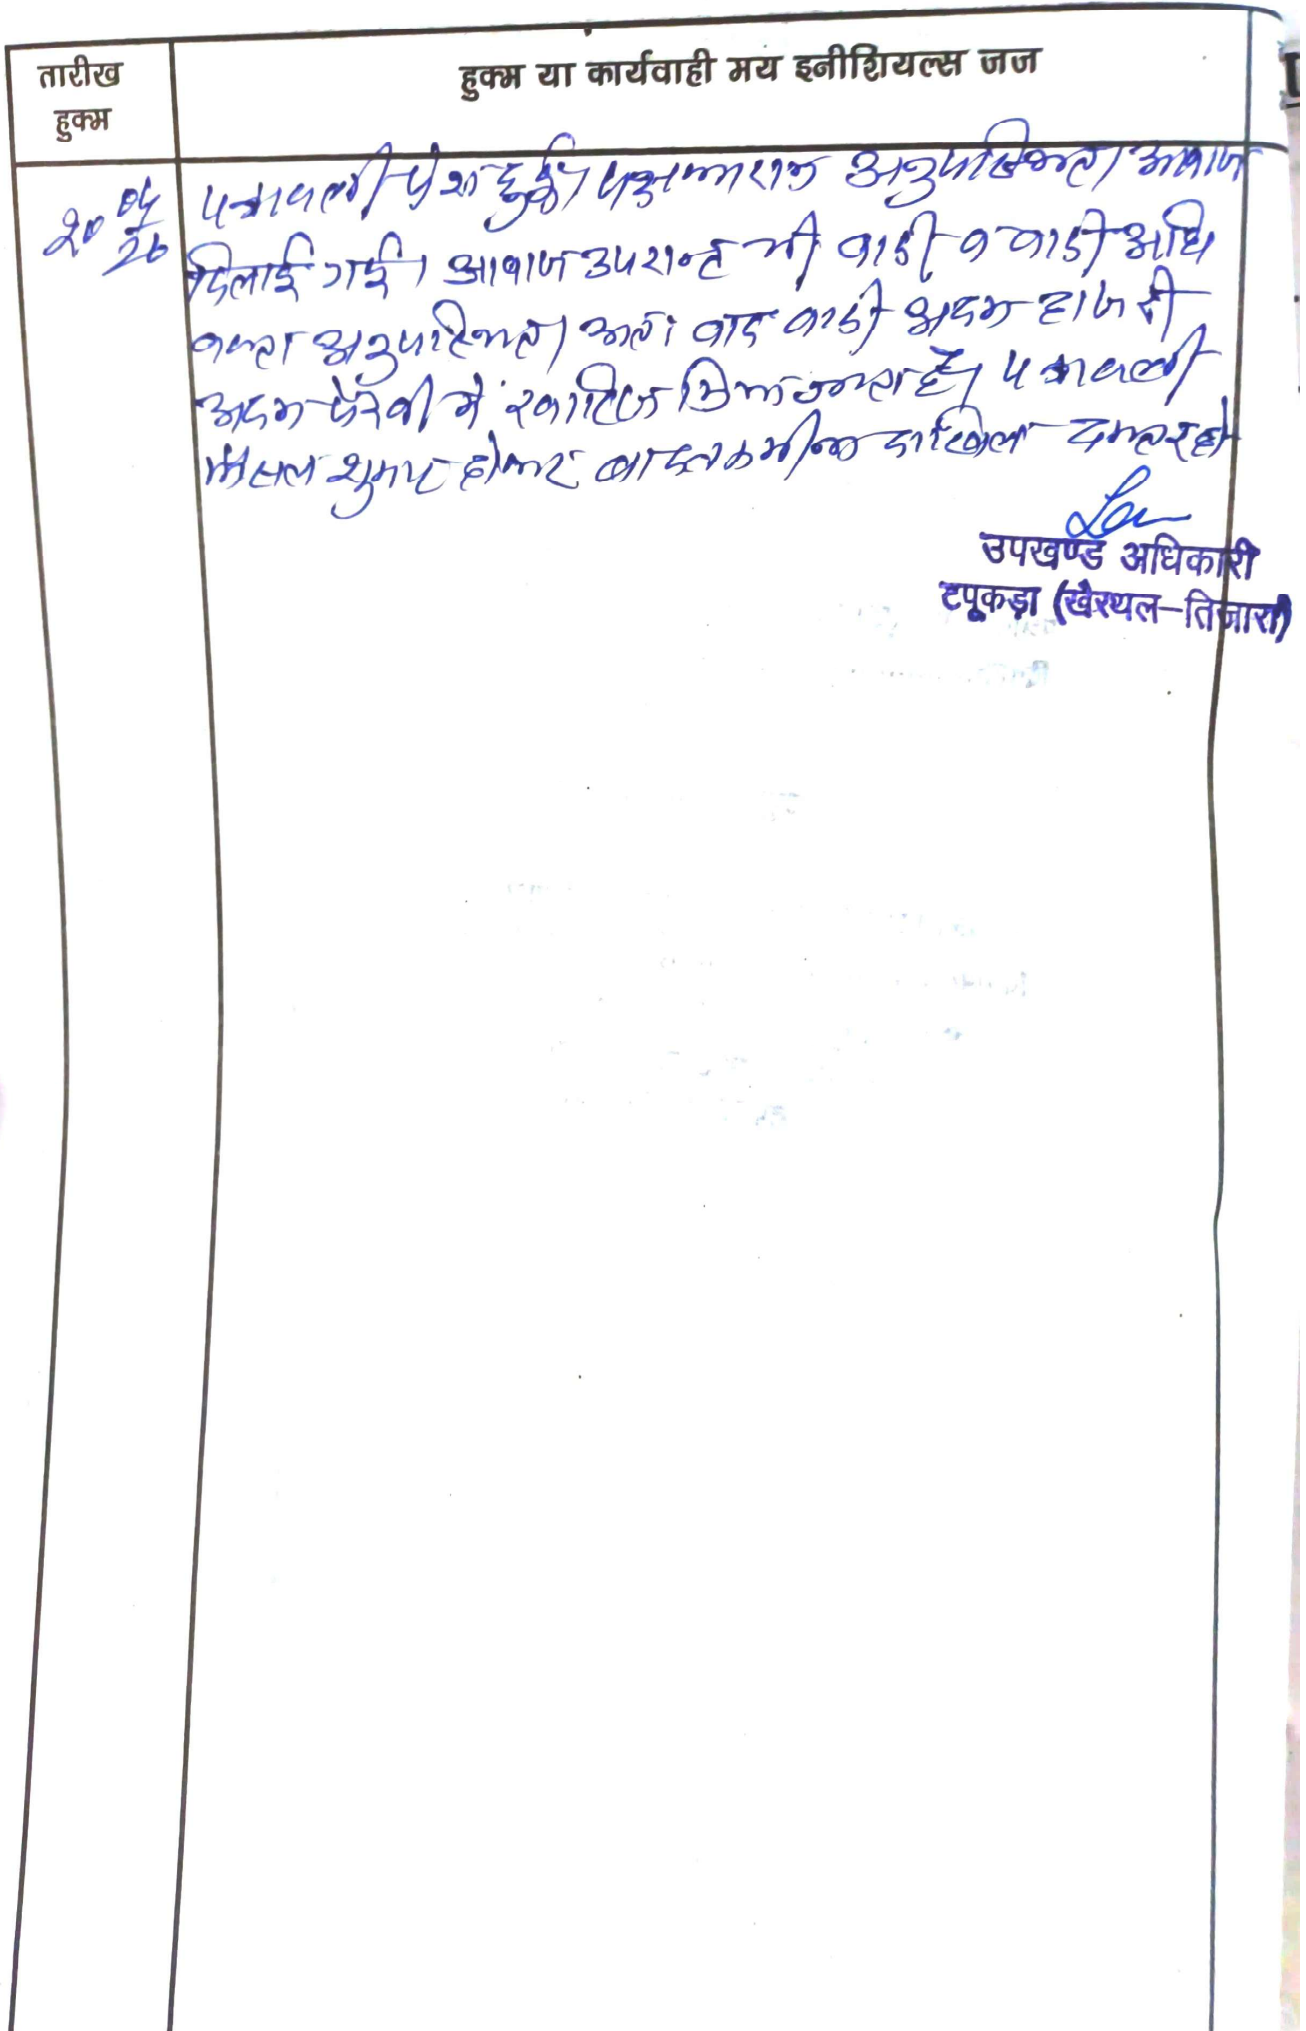 तारीख
हुक्म
हुक्म या कार्यवाही मय इनीशियल्स जज
20 04/26
पत्रावली पेश हुई। पक्षकारान अनुपस्थित। आवाज
दिलाई गई। आवाज उपरान्त भी वादी व वादी अधि
वक्ता अनुपस्थित। अतः वाद वादी अदम हाजरी
अदम पैरवी में खारिज किया जाता है। पत्रावली
मिसल शुमार होकर बाद तकमील दाखिल दफ्तर हो
उपखण्ड अधिकारी
टपूकड़ा (खैरथल-तिजारा)